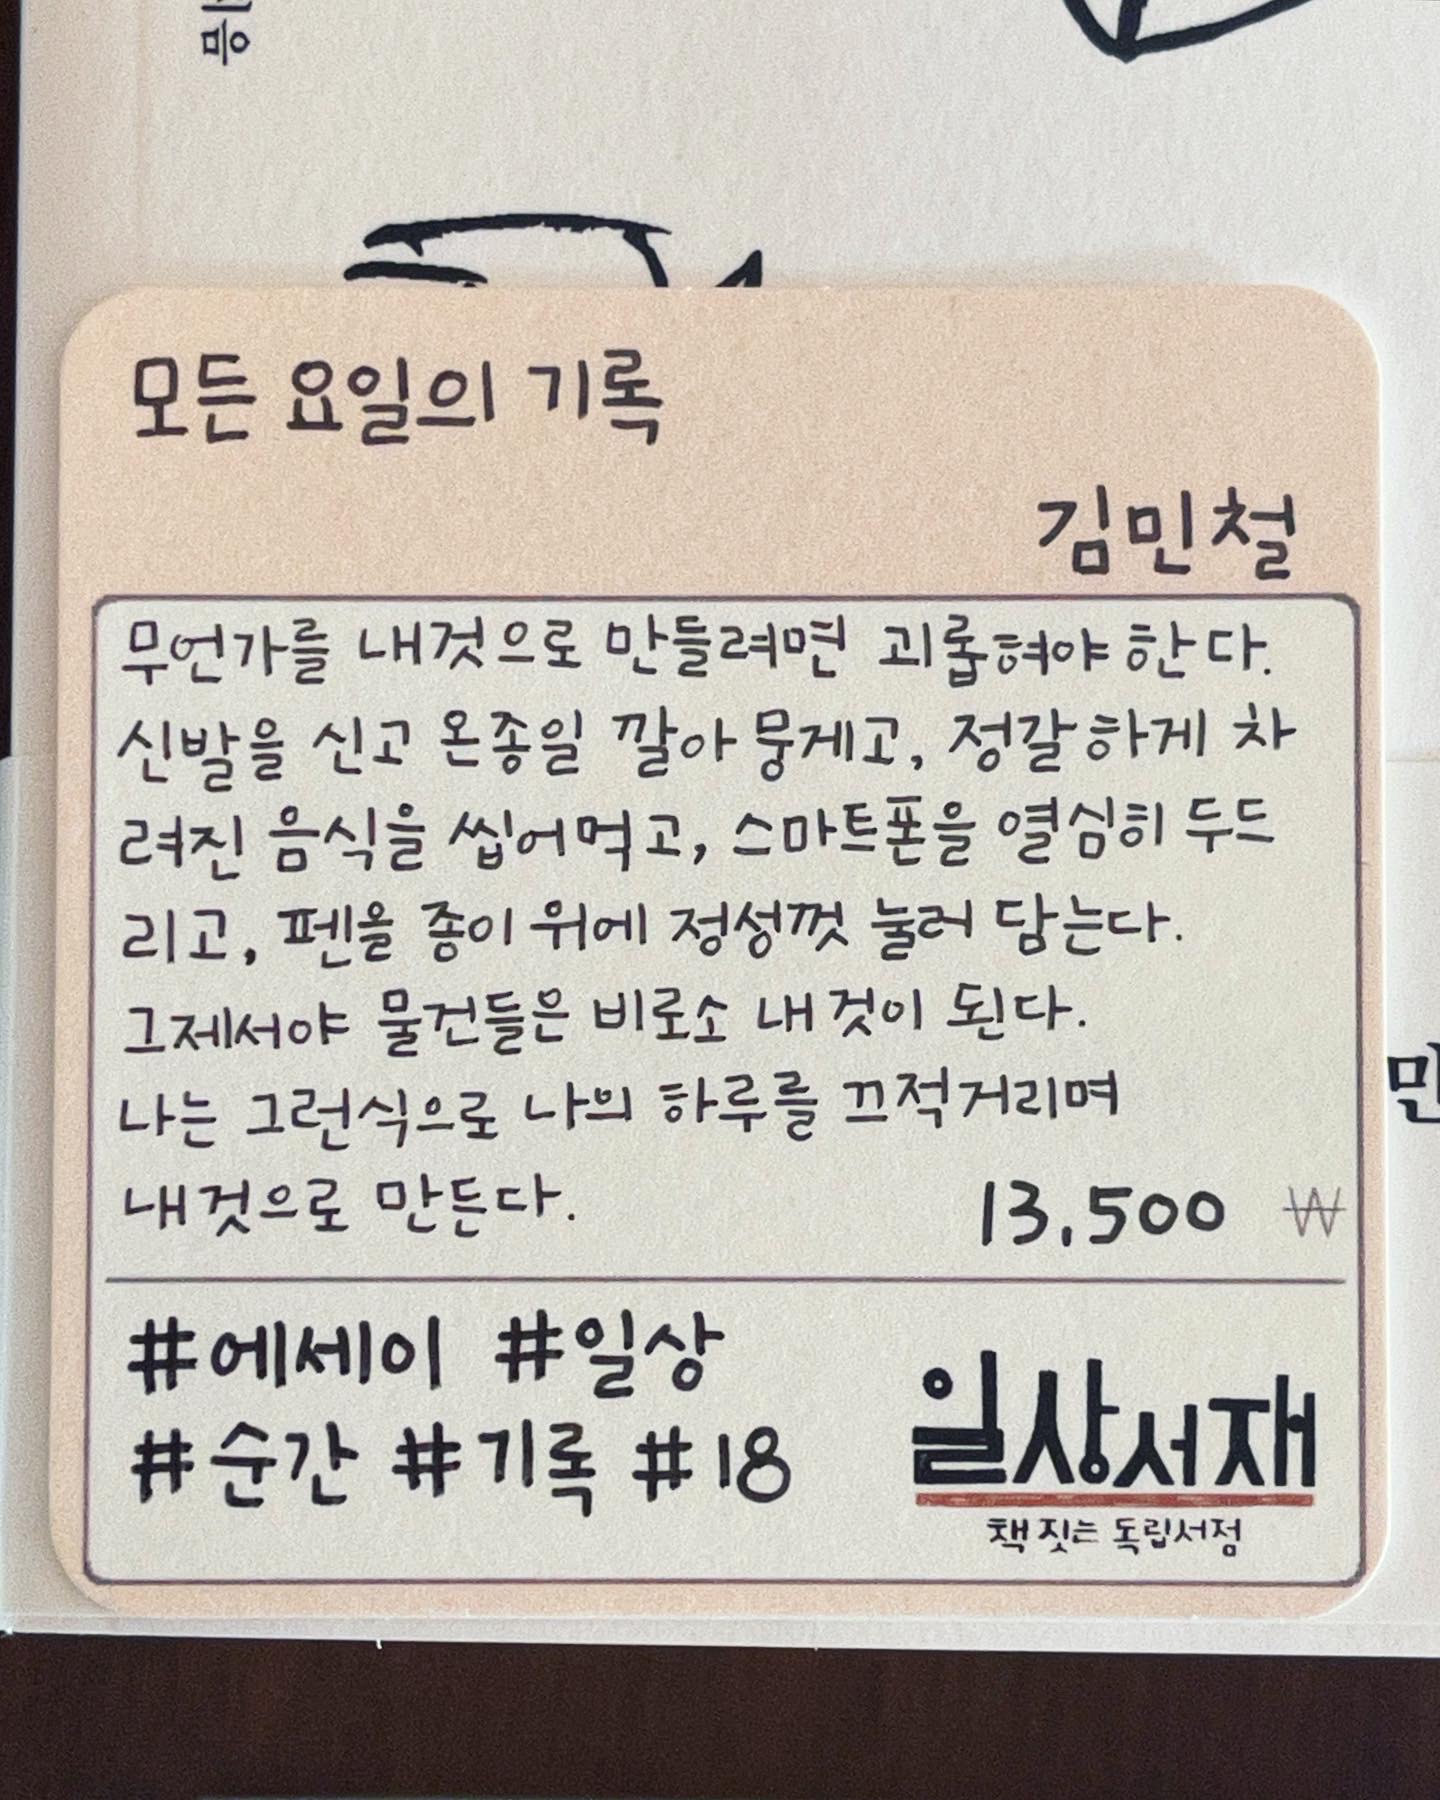 모든 요일의 기록
김민철
무언가를 내것으로 만들려면 괴롭혀야 한다.
신발을 신고 온종일 깔아뭉게고, 정갈하게 차
려진 음식을 씹어먹고, 스마트폰을 열심히 두드
리고, 펜을 종이 위에 정성껏 눌러 담는다.
그제서야 물건들은 비로소 내것이 된다.
나는 그런식으로 나의 하루를 끄적거리며
내것으로 만든다.
13,500 ₩
#에세이 #일상
#순간 #기록 #18
일상서재
책 짓는 독립서점